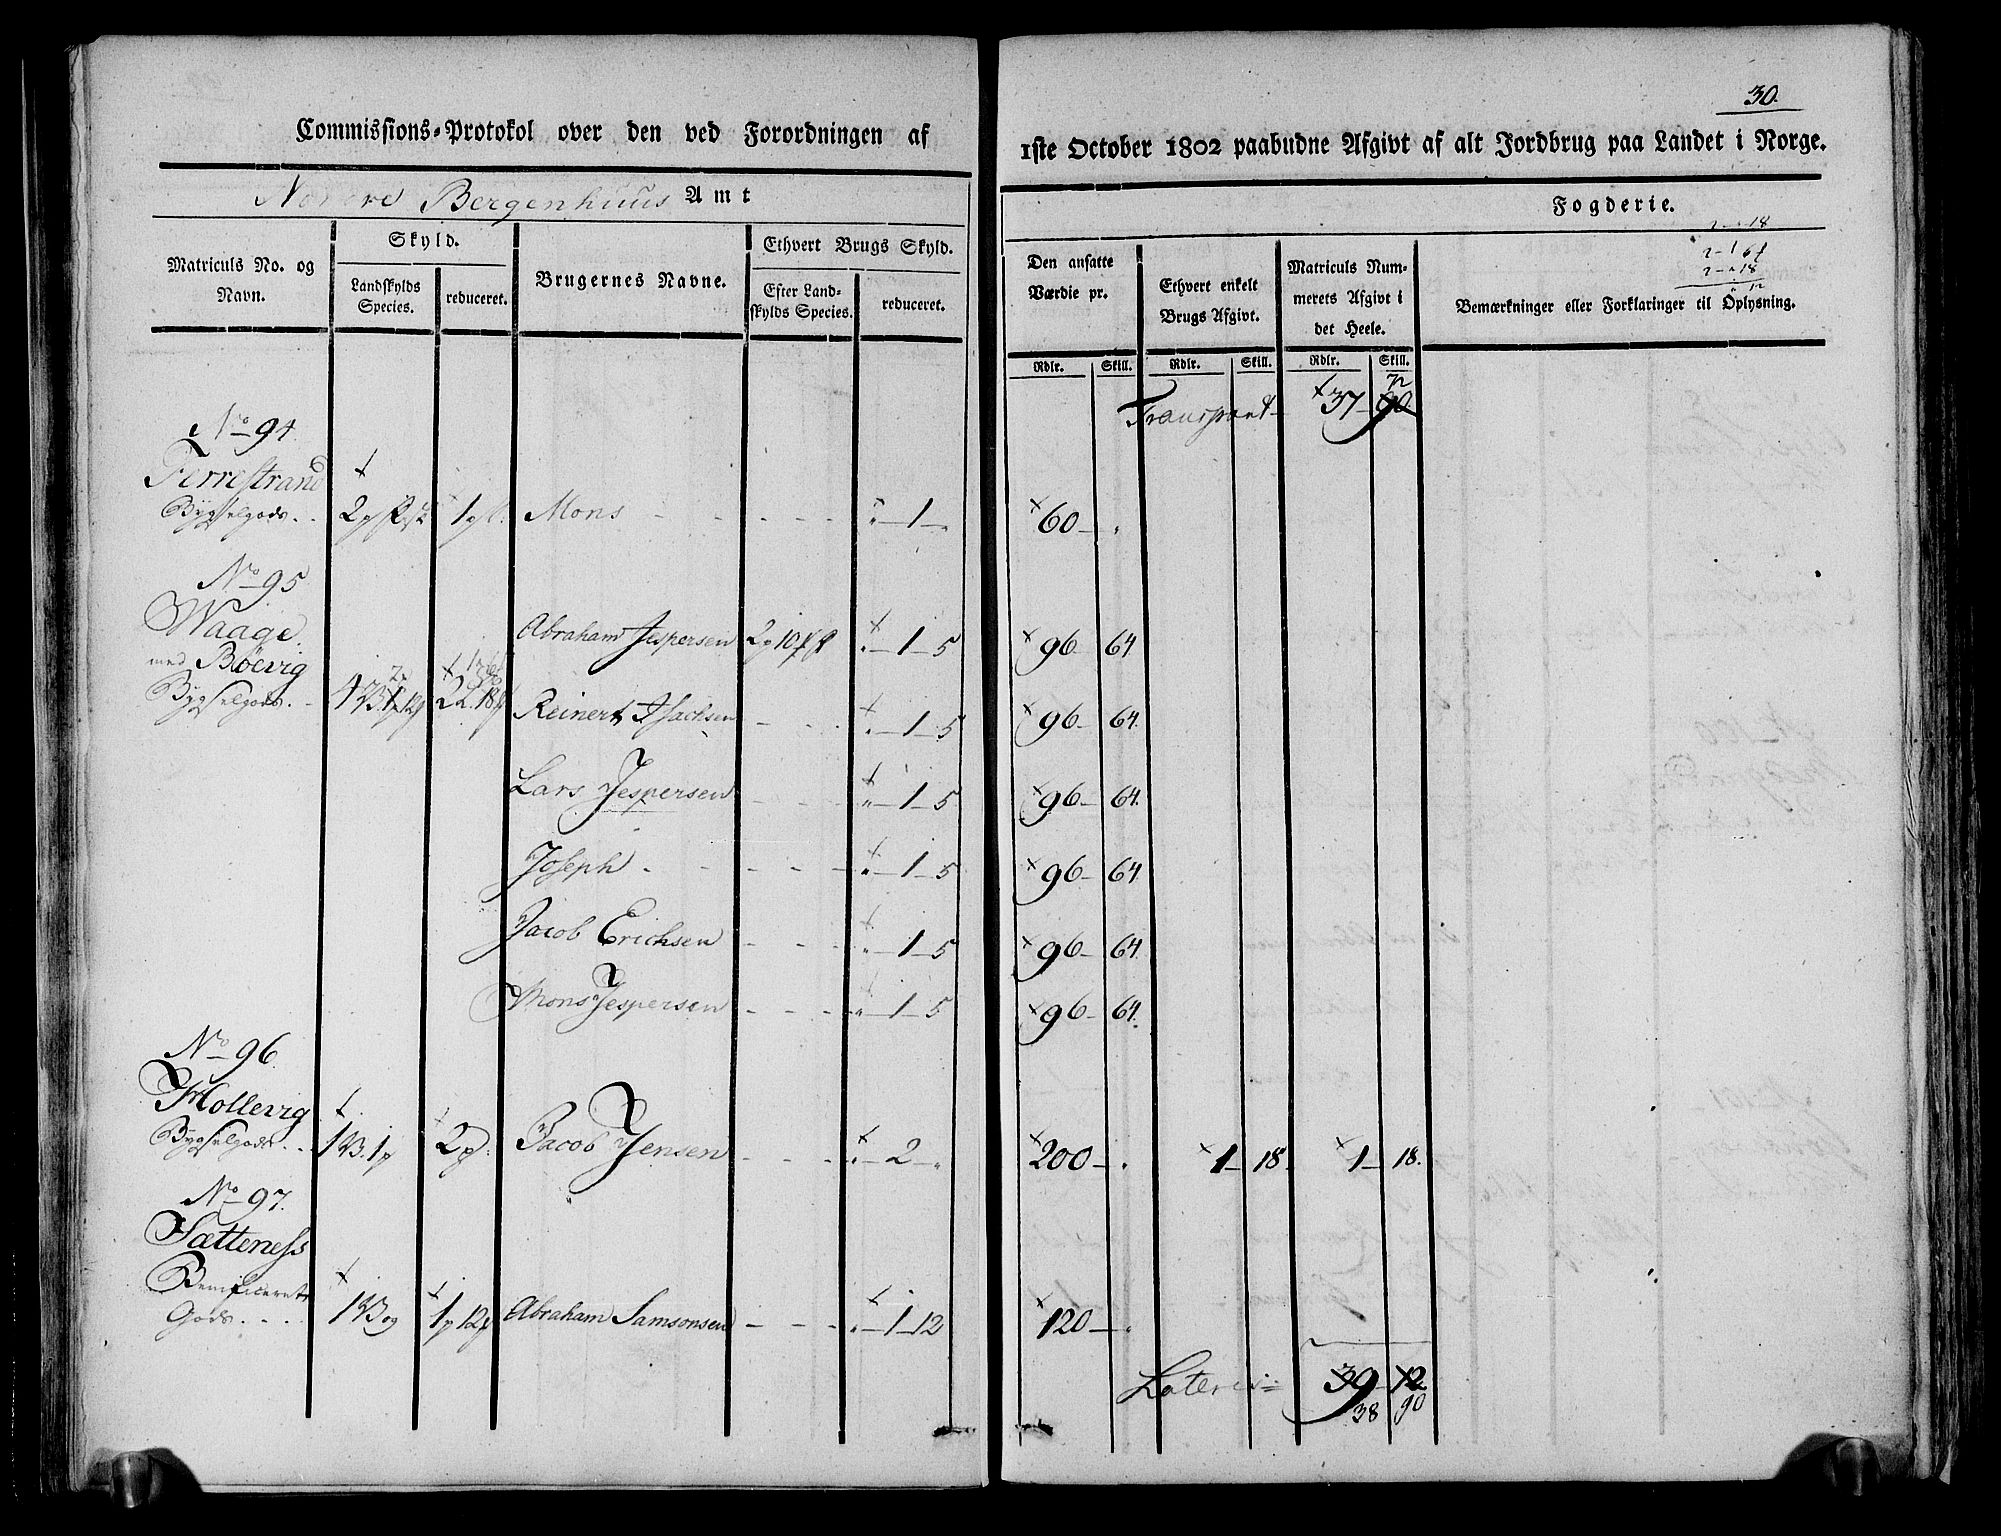 30.
Commissions-Protokol over den ved Forordningen af 1ste October 1802 paabudne Afgivt af alt Jordbrug paa Landet i Norge.
Nordre Bergenhuus Amt
Fogderie.
Matriculs No. og Navn.
Skyld.
Landskylds Species.
reduceret.
Brugernes Navne.
Ethvert Brugs Skyld.
Efter Landskylds Species.
reduceret.
Den ansatte Værdie pr.
Rdlr. Skill.
Ethvert enkelt Brugs Afgivt.
Rdlr. Skill.
Matriculs Nummerets Afgivt i det Heele.
Rdlr. Skill.
Bemærkninger eller Forklaringer til Oplysning.
Transport 37 90 72
No 94
Ferrestrand
Bygselgods 2 1 Mons - 1 - 60
No 95
Waage
med Böevig
Bygselgods
Abraham Jespersen 2 10 1 5 96 64
Reinert Isachsen 1 5 96 64.
Lars Jespersen 1 5 96 64.
Joseph 1 5 96 64.
Jacob Erichsen 1 5 96 64.
Mons Jespersen 1 5 96 64.
No 96
Hollevig
Bygselgods 1 1 2 Jacob Jensen 2 200 1 18 1 18.
No 97.
Sætteness
Benificeret
Gods 1 1 12 Abraham Samsonsen 1 12 120
Lateris 39 12
38 90